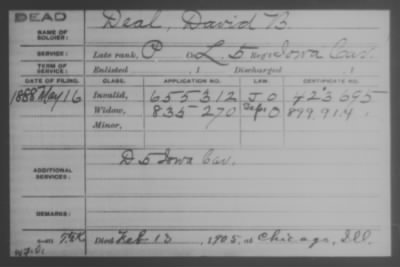 DEAD
NAME OF SOLDIER: Deal, David B.
SERVICE: Late rank, P Co. L, 5 Reg't Iowa Cav.
TERM OF SERVICE: Enlisted , 1 Discharged , 1
DATE OF FILING. CLASS. APPLICATION NO. LAW. CERTIFICATE NO.
1888 May 16 Invalid, 655312 J O 423695
Widow, 835270 O 899.914
Minor,
ADDITIONAL SERVICES: D 5 Iowa Cav.
REMARKS:
Died Feb 13, 1905, at Chicago, Ill.